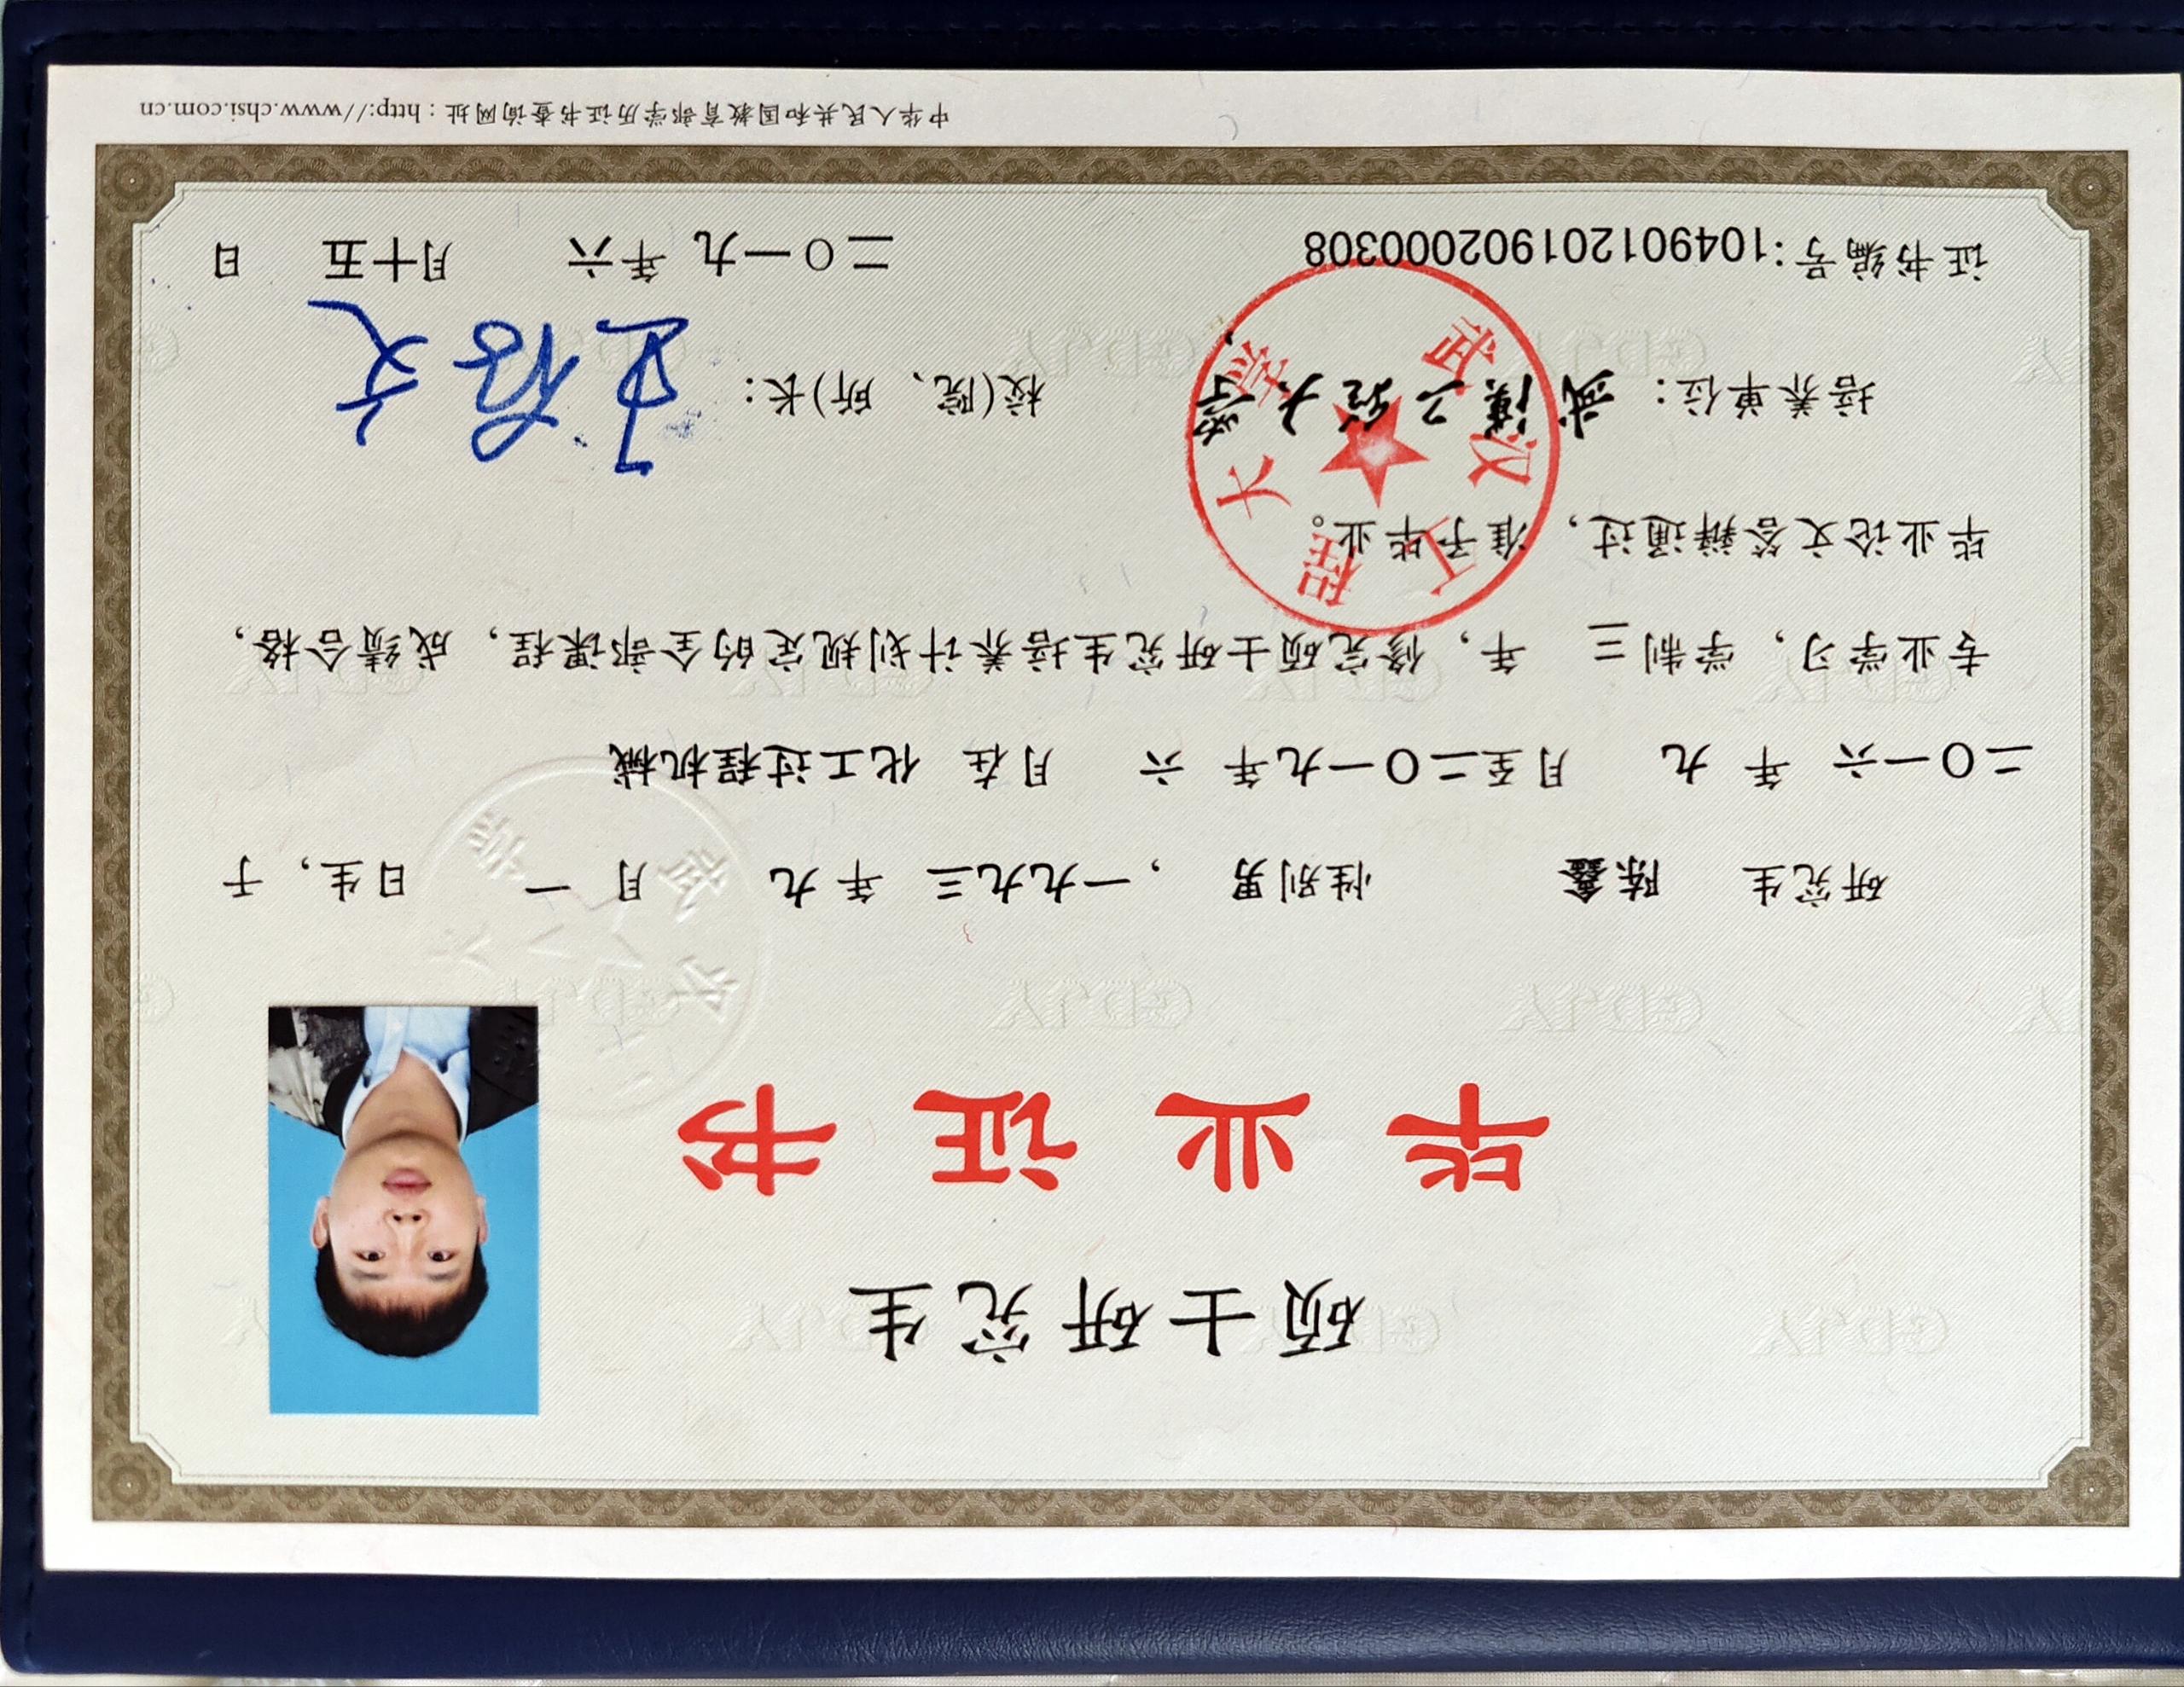 硕士研究生
毕业证书
研究生 陈鑫 性别 男 ，一九九三 年 九 月 一 日生，于
二〇一六 年 九 月至二〇一九年 六 月在 化工过程机械
专业学习，学制三 年，修完硕士研究生培养计划规定的全部课程，成绩合格，
毕业论文答辩通过，准予毕业。
培养单位： 武漢工程大学 校(院、所)长：
武汉工程大学
证书编号:104901201902000308 二〇一九 年 六 月十五 日
中华人民共和国教育部学历证书查询网址：http://www.chsi.com.cn
GDJY